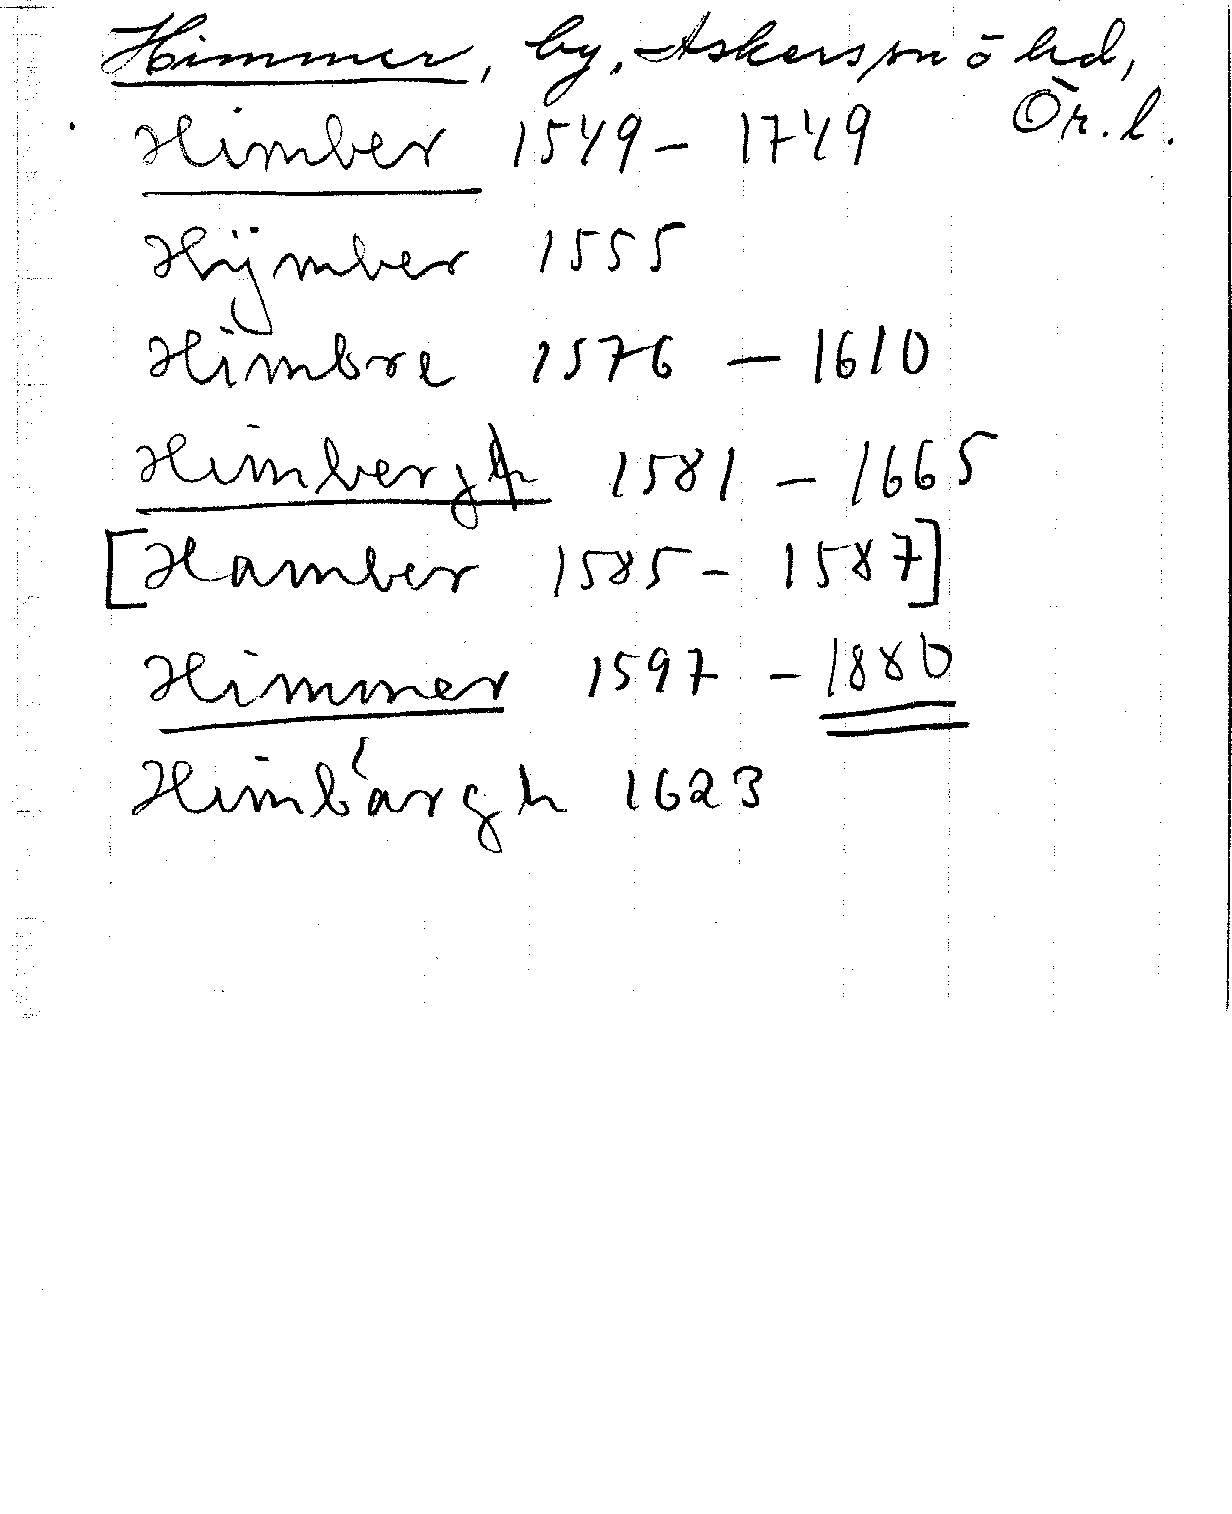 Himmer, by, Askers sn ö hd,
Ör. l.
Himber 1549 – 1749
Hÿmber 1555
Himbre 1576 – 1610
Himbergh 1581 – 1665
[Hamber 1585 – 1587]
Himmer 1597 – 1880
Himbärgh 1623